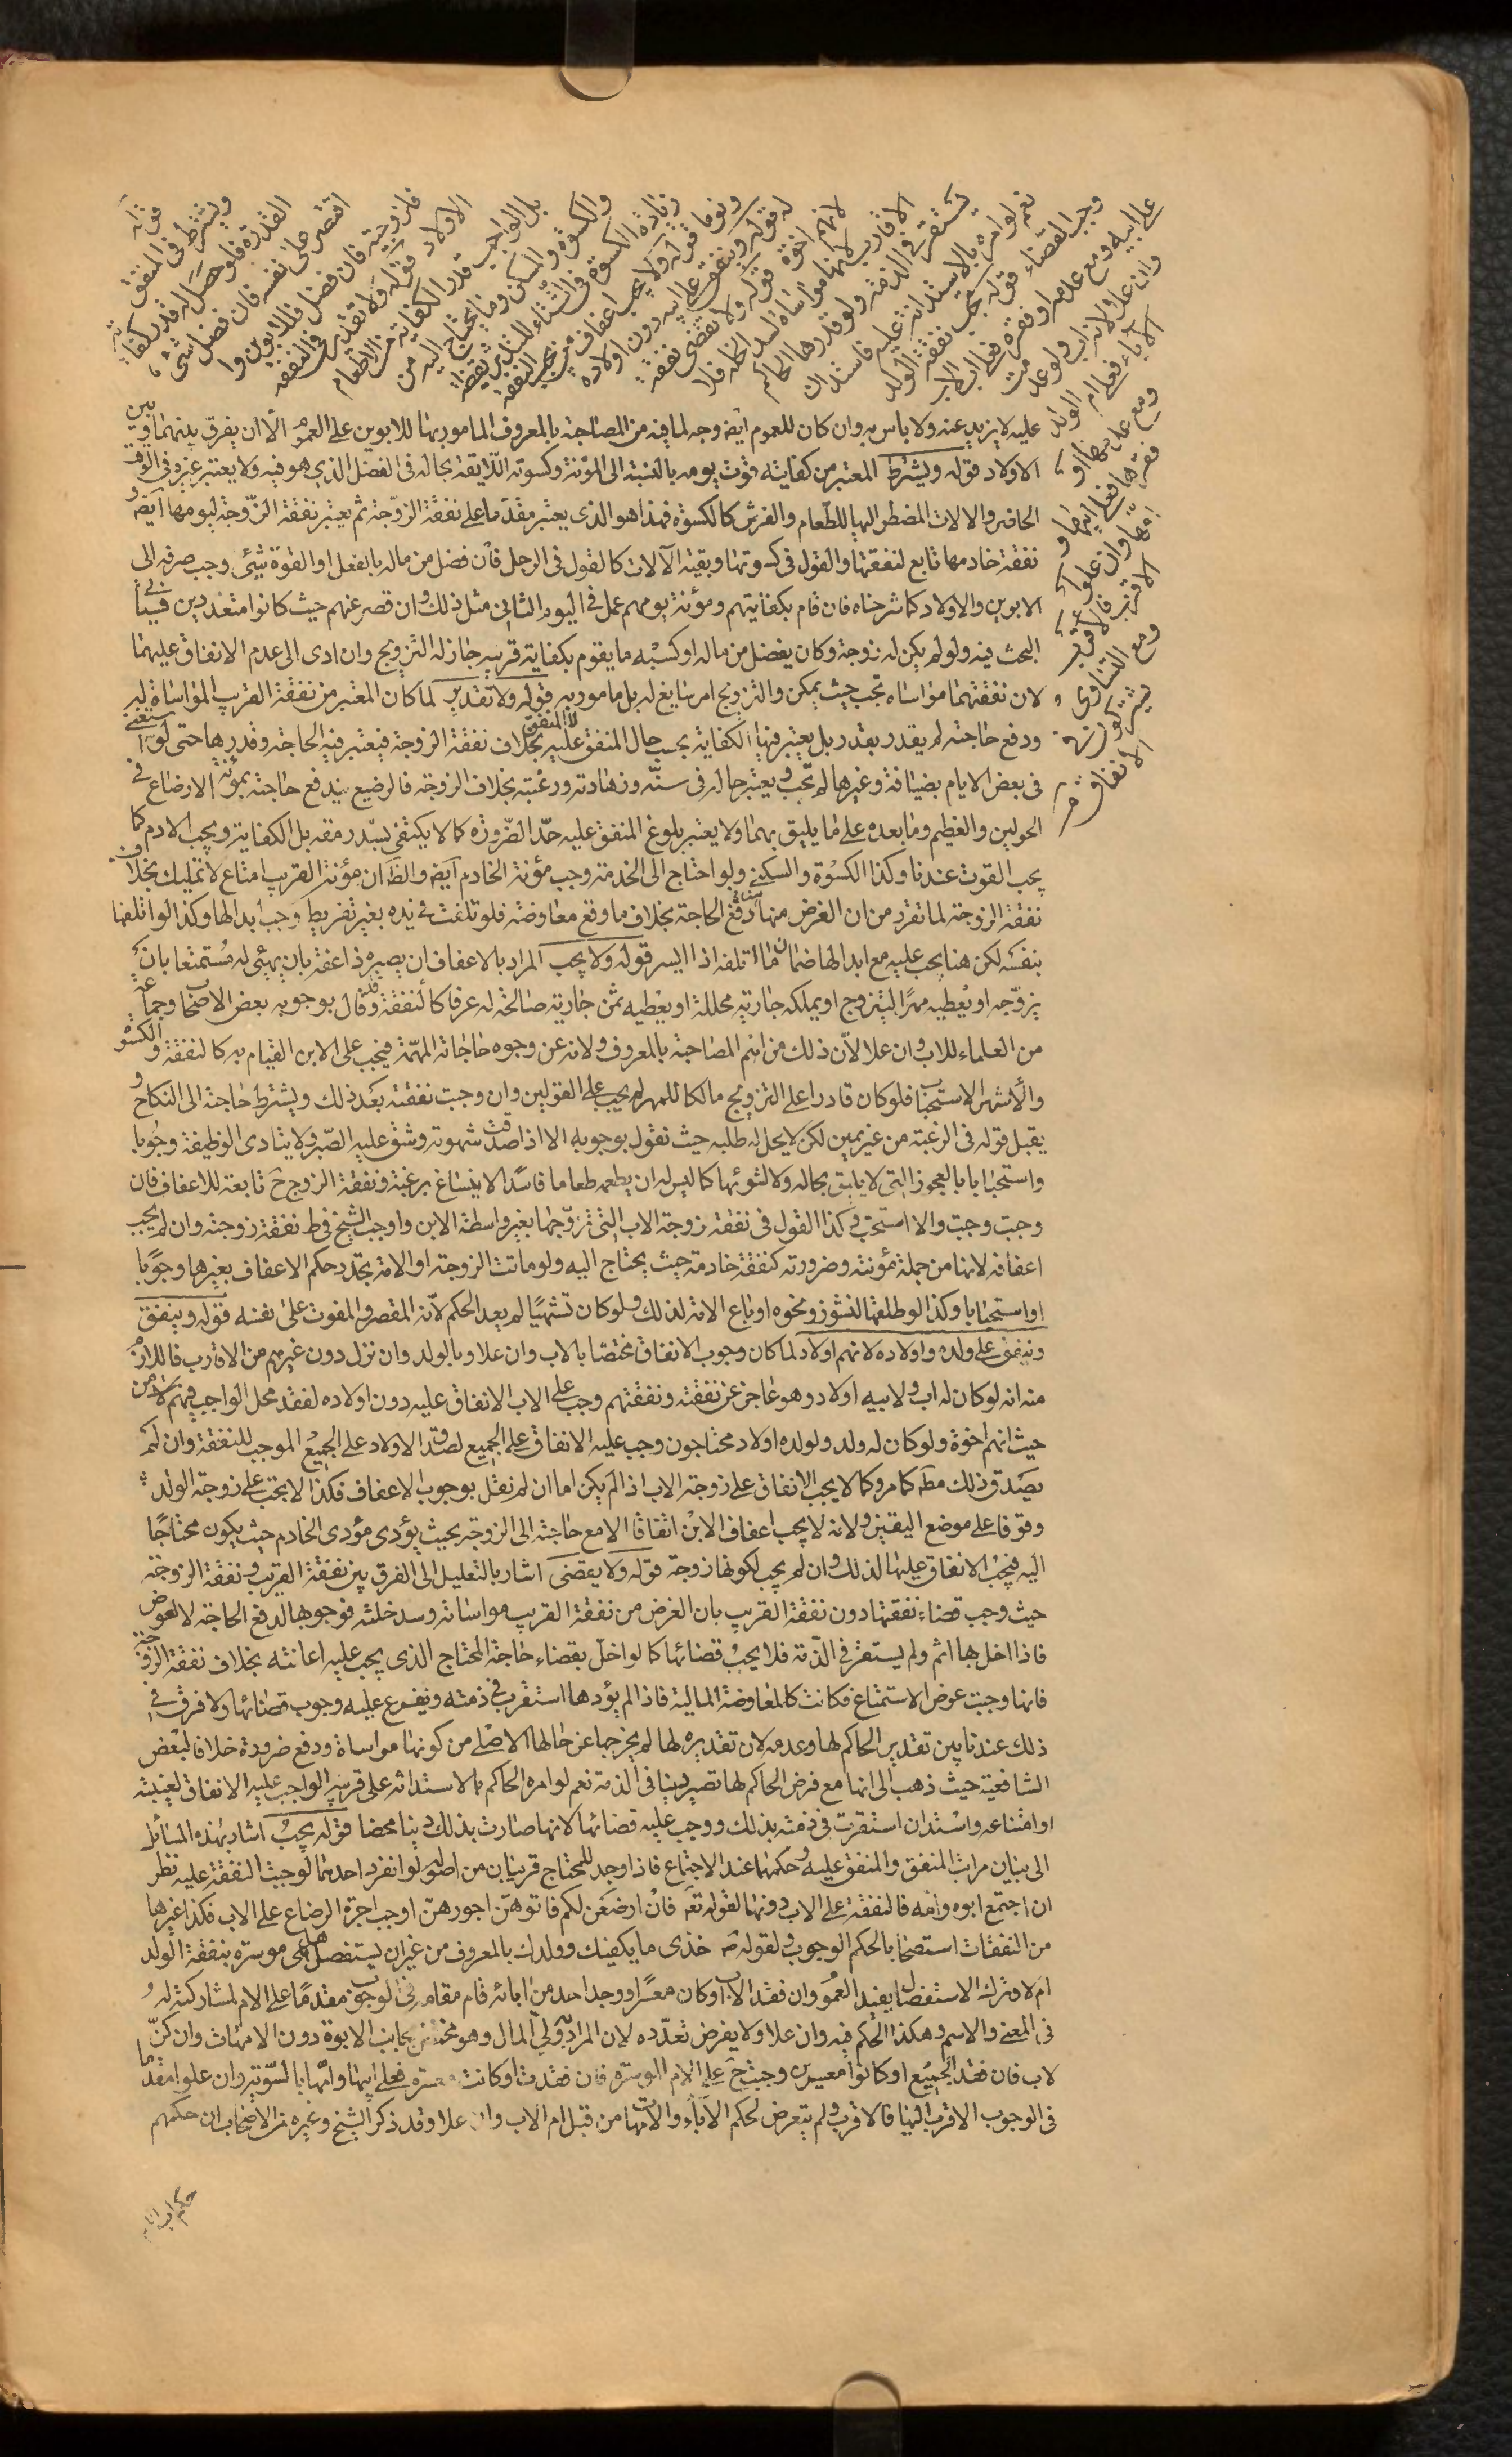 قوله ويشترط في المنفق
القدرة فلو حصل له قدر كفايته
اقتصر على نفسه فان فضل شيء
فلزوجته فان فضل فللابوين وا
الاولاد قوله ولا تقدير في النفقة
بل الواجب قدر الكفاية من الاطعام
والكسوة والمسكن وما يحتاج اليه من
زيادة الكسوة في الشتاء للتدثر يقظة
ونوما قوله ولا يجب اعفاف من يجب النفقة
له قوله وينفق على ابيه دون اولاده
لانهم اخوة قوله ولا تقضى نفقة
الاقارب لانها مواساة لسد الخلة فلا
يستقر في الذمة ولو قدرها الحاكم
نعم لو امره بالاستدانة عليه فاستدان
وجب القضاء قوله يجب نفقة الولد
على ابيه ومع عدمه او فقره فعلى اب الاب
وان علا لانه اب ولو عدمت
الآباء فعلى ام الولد
ومع عدمها او
فقرها فعلى ابيها و
امها وان علوا
الاقرب فالاقرب
ومع التساوي
يشتركون في
الانفاق
عليه لا يزيد عنه ولا باس به وان كان للعموم ايضا وجه لما فيه من المصاحبة بالمعروف المامور بها للابوين على العموم الا ان يفرق بينهما وبين
الاولاد قوله ويشترط المعتبر من كفايته قوت يومه بالنسبة الى المؤنة وكسوته اللايقة بحاله في الفصل الذي هو فيه ولا يعتبر غيره في الوقت
الحاضر والالات المضطر اليها للطعام والفرش كالكسوة فهذا هو الذي يعتبر مقدما على نفقة الزوجة ثم يعتبر نفقة الزوجة ليومها ايضا و
نفقة خادمها تابع لنفقتها والقول في كسوتها وبقية الآلات كالقول في الرجل فان فضل من ماله بالفعل او القوة شيئ وجب صرفه الى
الابوين والاولاد كما شرحناه فان قام بكفايتهم ومؤنة يومهم عمل في اليوم الثاني مثل ذلك وان قصر عنهم حيث كانوا متعددين فسياتي
البحث فيه ولو لم يكن له زوجة وكان يفضل من ماله او كسبه ما يقوم بكفاية قريبه جاز له التزويج وان ادى الى عدم الانفاق عليهما
لان نفقتهما مواساة تجب حيث يمكن والتزويج امر سايغ له بل مامور به قوله ولا تقدير لما كان المعتبر من نفقة القريب المواساة له
ودفع حاجته لم يقدر بقدر بل يعتبر فيها الكفاية بحسب حال المنفق عليه لا المنفق بخلاف نفقة الزوجة فيعتبر فيه الحاجة وقدرها حتى لو استغنى
في بعض الايام بضيافة وغيرها لم تجب ويعتبر حاله في سنه وزهادته ورغبته بخلاف الزوجة فالرضيع يندفع حاجته بمؤنة الارضاع في
الحولين والفطيم وما بعده على ما يليق بهما ولا يعتبر بلوغ المنفق عليه حد الضرورة كما لا يكتفى بسد رمقه بل الكفاية ويجب الادم كما
يجب القوت عندنا وكذا الكسوة والسكنى ولو احتاج الى الخدمة وجب مؤنة الخادم ايضا والظ ان مؤنة القريب امتاع لا تمليك بخلاف
نفقة الزوجة لما تقرر من ان الغرض منها دفع الحاجة بخلاف ما وقع معاوضة فلو تلفت في يده بغير تفريط وجب ابدالها وكذا لو اتلفها
بنفسه لكن هنا يجب عليه مع ابدالها ضمان ما اتلفه اذا ايسر قوله ولا يجب المراد بالاعفاف ان يصيره ذا عفة بان يهيئ له مستمتعا بان
يزوجه او يعطيه مهرا ليتزوج او يملكه جارية محللة او يعطيه ثمن جارية صالحة له عرفا كالنفقة وقد قال بوجوبه بعض الاصحاب وجماعة
من العلماء للاب وان علا لان ذلك من اهم المصاحبة بالمعروف ولانه عن وجوه حاجاته المهمة فيجب على الابن القيام به كالنفقة والكسوة
والاشهر الاستحباب فلو كان قادرا على التزويج مالكا للمهر لم يجب على القولين وان وجبت نفقته بعد ذلك ويشترط حاجته الى النكاح و
يقبل قوله في الرغبة من غير يمين لكن لا يحل له طلبه حيث نقول بوجوبه الا اذا صدقت شهوته وشق عليه الصبر ولا يتادى الوظيفة وجوبا
واستحبابا بالعجوز التي لا يليق بحاله ولا لشوئها كما ليس له ان يطعمه طعاما فاسدا لا ينساغ برغبة ونفقة الزوج ح تابعة للاعفاف فان
وجبت وجبت والا استحب وكذا القول في نفقة زوجة الاب التي تزوجها بغير واسطة الابن واوجب الشيخ في ط نفقة زوجته وان لم يجب
اعفافه لانها من جملة مؤنته وضرورته كنفقة خادمه حيث يحتاج اليه ولو ماتت الزوجة او الامة تجدد حكم الاعفاف بغيرها وجوبا
او استحبابا وكذا لو طلقها لنشوز ونحوه او باع الامة لذلك ولو كان تشهيا لم يعد الحكم لانه المقصر والمفوت على نفسه قوله وينفق
وينفق على ولده واولاده لانهم اولاد لما كان وجوب الانفاق مختصا بالاب وان علا وبالولد وان نزل دون غيرهم من الاقارب فاللازم
منه انه لو كان له اب ولابيه اولاد وهو عاجز عن نفقته ونفقتهم وجب على الاب الانفاق عليه دون اولاده لفقد محل الواجب فيهم لا من
حيث انهم اخوة ولو كان له ولد ولولده اولاد محتاجون وجب عليه الانفاق على الجميع لصدق الاولاد على الجميع الموجب للنفقة وان لم
يصدق ذلك مط كما مر وكما لا يجب الانفاق على زوجة الاب اذا لم يكن اما ان لم نقل بوجوب الاعفاف فكذا لا يجب على زوجة الولد
وقوفا على موضع اليقين ولانه لا يجب اعفاف الابن اتفاقا الا مع حاجته الى الزوجة بحيث يؤدى مؤدى الخادم حيث يكون محتاجا
اليه فيجب الانفاق عليها لذلك وان لم يجب لكونها زوجة قوله ولا يقضى اشار بالتعليل الى الفرق بين نفقة القريب ونفقة الزوجة
حيث وجب قضاء نفقتها دون نفقة القريب بان الغرض من نفقة القريب مواساته وسد خلته فوجوبها لدفع الحاجة لا لعوض
فاذا اخل بها اثم ولم يستقر في الذمة فلا يجب قضائها كما لو اخل بقضاء حاجة المحتاج الذي يجب عليه اعانته بخلاف نفقة الزوجة
فانها وجبت عوض الاستمتاع فكانت كالمعاوضة المالية فاذا لم يؤدها استقرت في ذمته ويفرع عليه وجوب قضائها ولا فرق في
ذلك عندنا بين تقدير الحاكم لها وعدمه لان تقديره لها لم يخرجها عن حالها الاصلي من كونها مواساة ودفع ضرورة خلافا لبعض
الشافعية حيث ذهب الى انها مع فرض الحاكم لها تصير دينا في الذمة نعم لو امره الحاكم بالاستدانة على قريبه الواجب عليه الانفاق لغيبته
او امتناعه واستدان استقرت في ذمته بذلك ووجب عليه قضائها لانها صارت بذلك دينا محضا قوله يجب اشار بهذه المسائل
الى بيان مراتب المنفق والمنفق عليه وحكمهما عند الاجتماع فاذا وجد للمحتاج قريبان من اصوله لو انفرد احدهما لوجبت النفقة عليه نظر
ان اجتمع ابوه وامه فالنفقة على الاب دونها لقوله تع فان ارضعن لكم فاتوهن اجورهن اوجب اجرة الرضاع على الاب فكذا غيرها
من النفقات استصحابا لحكم الوجوب ولقوله ص خذى ما يكفيك وولدك بالمعروف من غير ان يستفصل هل هي موسرة بنفقة الولد
ام لا وترك الاستفصال يفيد العموم وان فقد الاب او كان معسرا ووجد احد من ابائه قام مقامه في الوجوب مقدما على الام لمشاركته له
في المعنى والاسم وهكذا الحكم فيه وان علا ولا يفرض تعدده لان المراد به ولي المال وهو مختص بجانب الابوة دون الامهات وان كن
لاب فان فقد الجميع او كانوا معسرين وجبت ح على الام الموسرة فان فقدت او كانت معسرة فعلى ابيها وامها بالسوية وان علوا مقدما
في الوجوب الاقرب اليها فالاقرب ولم يتعرض لحكم الآباء والامهات من قبل ام الاب وان علا وقد ذكر الشيخ وغيره من الاصحاب ان حكمهم